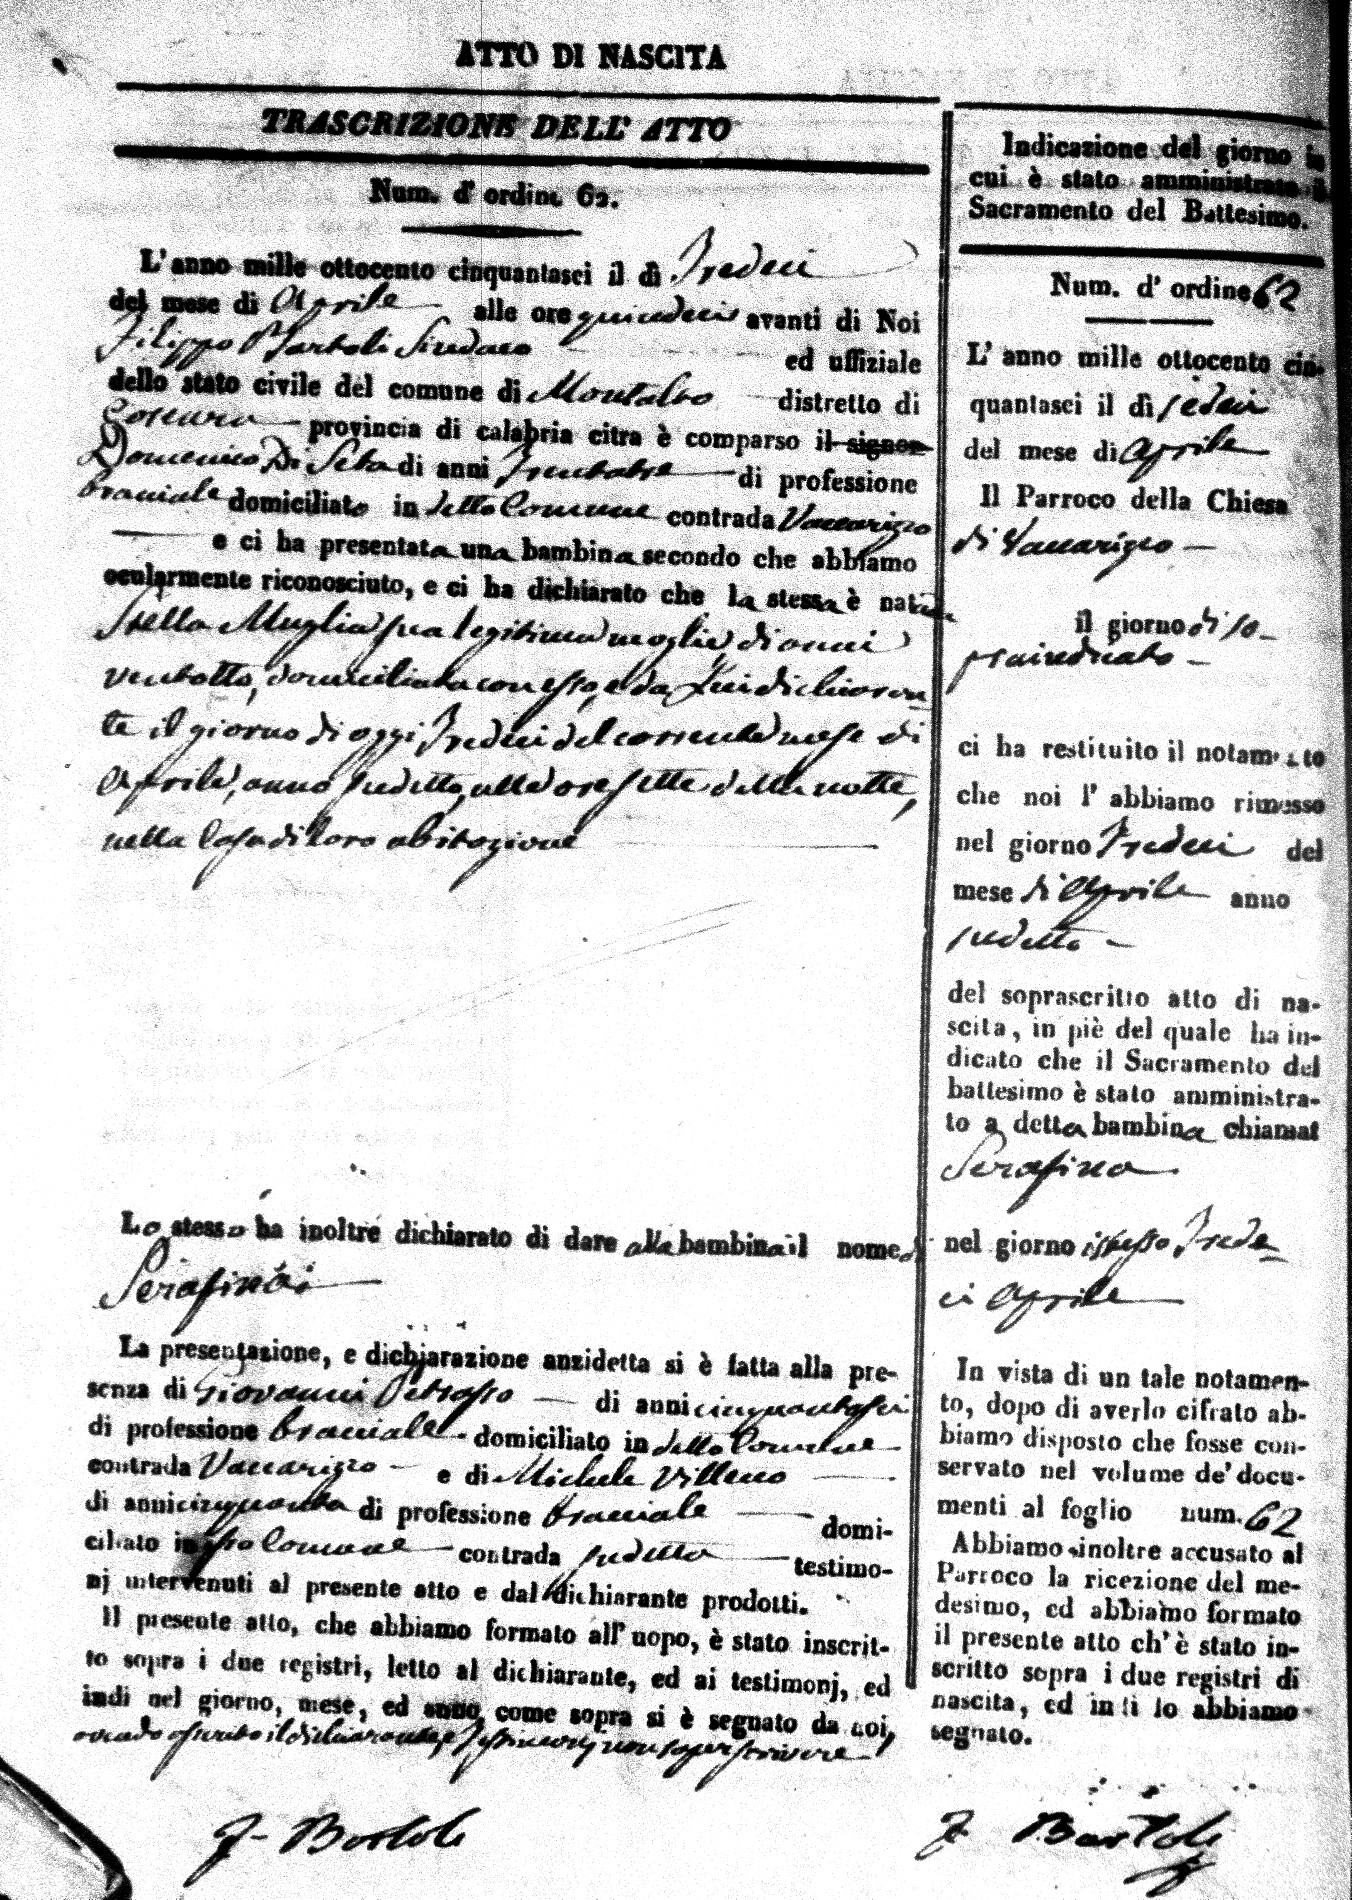 ATTO DI NASCITA
TRASCRIZIONE DELL' ATTO
Num. d' ordine 62.
L' anno mille ottocento cinquantasei il dì Tredeci
del mese di Aprile alle ore quindeci avanti di Noi
Filippo Bartoli Sindaco ed uffiziale
dello stato civile del comune di Montalto distretto di
Cosenza provincia di calabria citra è comparso il signor
Domenico Di Seta di anni Trentatre di professione
bracciale domiciliato in detto Comune contrada Vaccarizzo
e ci ha presentata una bambina secondo che abbiamo
ocularmente riconosciuto, e ci ha dichiarato che la stessa è nata da
Stella Muglia sua legitima moglie di anni
ventotto, domiciliata con esso, e da Lui dichiaran
te il giorno di oggi Tredeci del corrente mese di
Aprile, anno sudetto, alle ore sette della notte,
nella Casa di loro abitazione
Lo stesso ha inoltre dichiarato di dare alla bambina il nome di
Serafina
La presentazione, e dichiarazione anzidetta si è fatta alla pre-
senza di Giovanni Petrasso di anni cinquantasei
di professione bracciale domiciliato in detto Comune
contrada Vaccarizzo e di Michele Villeco
di anni cinquanta di professione bracciale domi-
ciliato in esso Comune contrada sudetta testimo-
nj intervenuti al presente atto e dal dichiarante prodotti.
Il presente atto, che abbiamo formato all' uopo, è stato inscrit-
to sopra i due registri, letto al dichiarante, ed ai testimonj, ed
indi nel giorno, mese, ed anno, come sopra si è segnato da noi,
avendo asserito il dichiarante, e Testimonj non saper scrivere
F. Bartoli
Indicazione del giorno in
cui è stato amministrato il
Sacramento del Battesimo.
Num. d' ordine 62
L' anno mille ottocento cin-
quantasei il dì sedeci
del mese di Aprile
Il Parroco della Chiesa
di Vaccarizzo
il giorno di so
praindicato
ci ha restituito il notamento
che noi l' abbiamo rimesso
nel giorno Tredeci del
mese di Aprile anno
sudetto
del soprascritto atto di na-
scita, in piè del quale ha in-
dicato che il Sacramento del
battesimo è stato amministra-
to a detta bambina chiamat
Serafina
nel giorno istesso Trede
ci Aprile
In vista di un tale notamen-
to, dopo di averlo cifrato ab-
biamo disposto che fosse con-
servato nel volume de' docu-
menti al foglio num. 62
Abbiamo inoltre accusato al
Parroco la ricezione del me-
desimo, ed abbiamo formato
il presente atto ch' è stato in-
scritto sopra i due registri di
nascita, ed indi lo abbiamo
segnato.
F. Bartoli